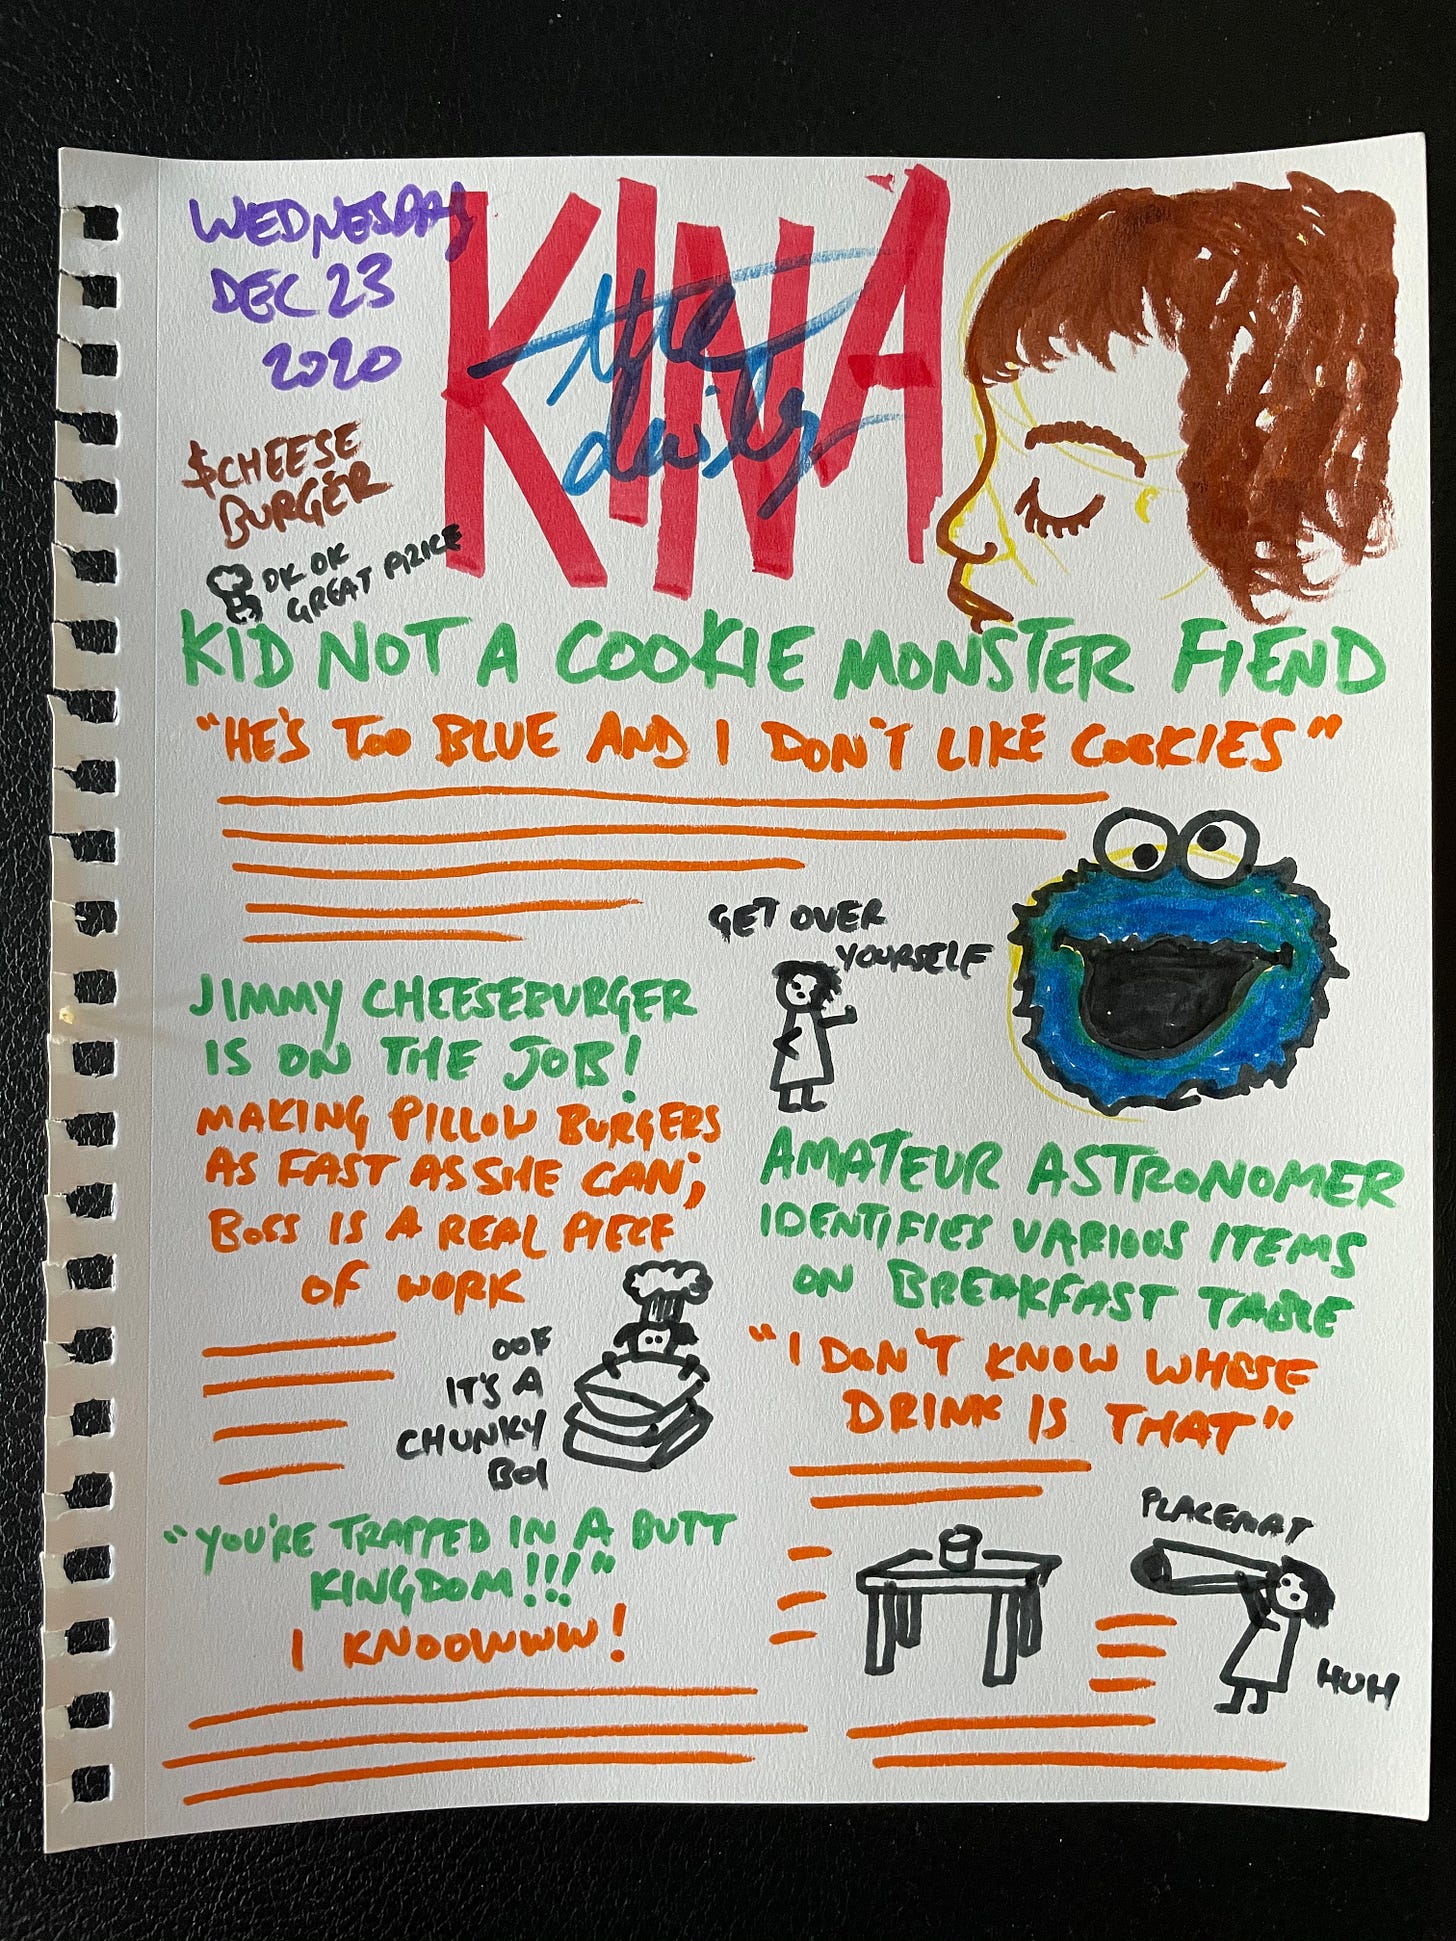 WEDNESDAY
DEC 23
2020
KINA
the daily
$CHEESE
BURGER
OK OK
GREAT PRICE
KID NOT A COOKIE MONSTER FIEND
"HE'S TOO BLUE AND I DON'T LIKE COOKIES"
GET OVER
YOURSELF
JIMMY CHEESEBURGER
IS ON THE JOB!
MAKING PILLOW BURGERS
AS FAST AS SHE CAN;
BOSS IS A REAL PIECE
OF WORK
OOF
IT'S A
CHUNKY
BOI
AMATEUR ASTRONOMER
IDENTIFIES VARIOUS ITEMS
ON BREAKFAST TABLE
"I DON'T KNOW WHOSE
DRINK IS THAT"
PLACEMAT
HUH
"YOU'RE TRAPPED IN A BUTT
KINGDOM!!!"
I KNOOWWW!